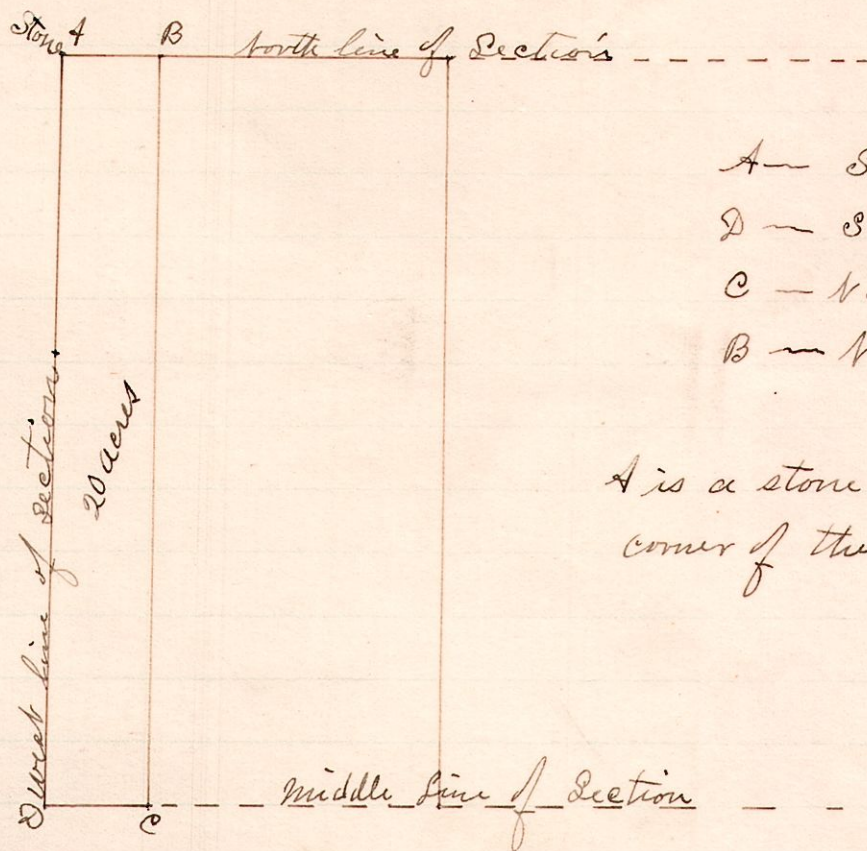 Stone A B North line of Section
A — S
D — S
C — N
B — N
20 acres
A is a stone
corner of the
West line of Section
D C
Middle Line of Section